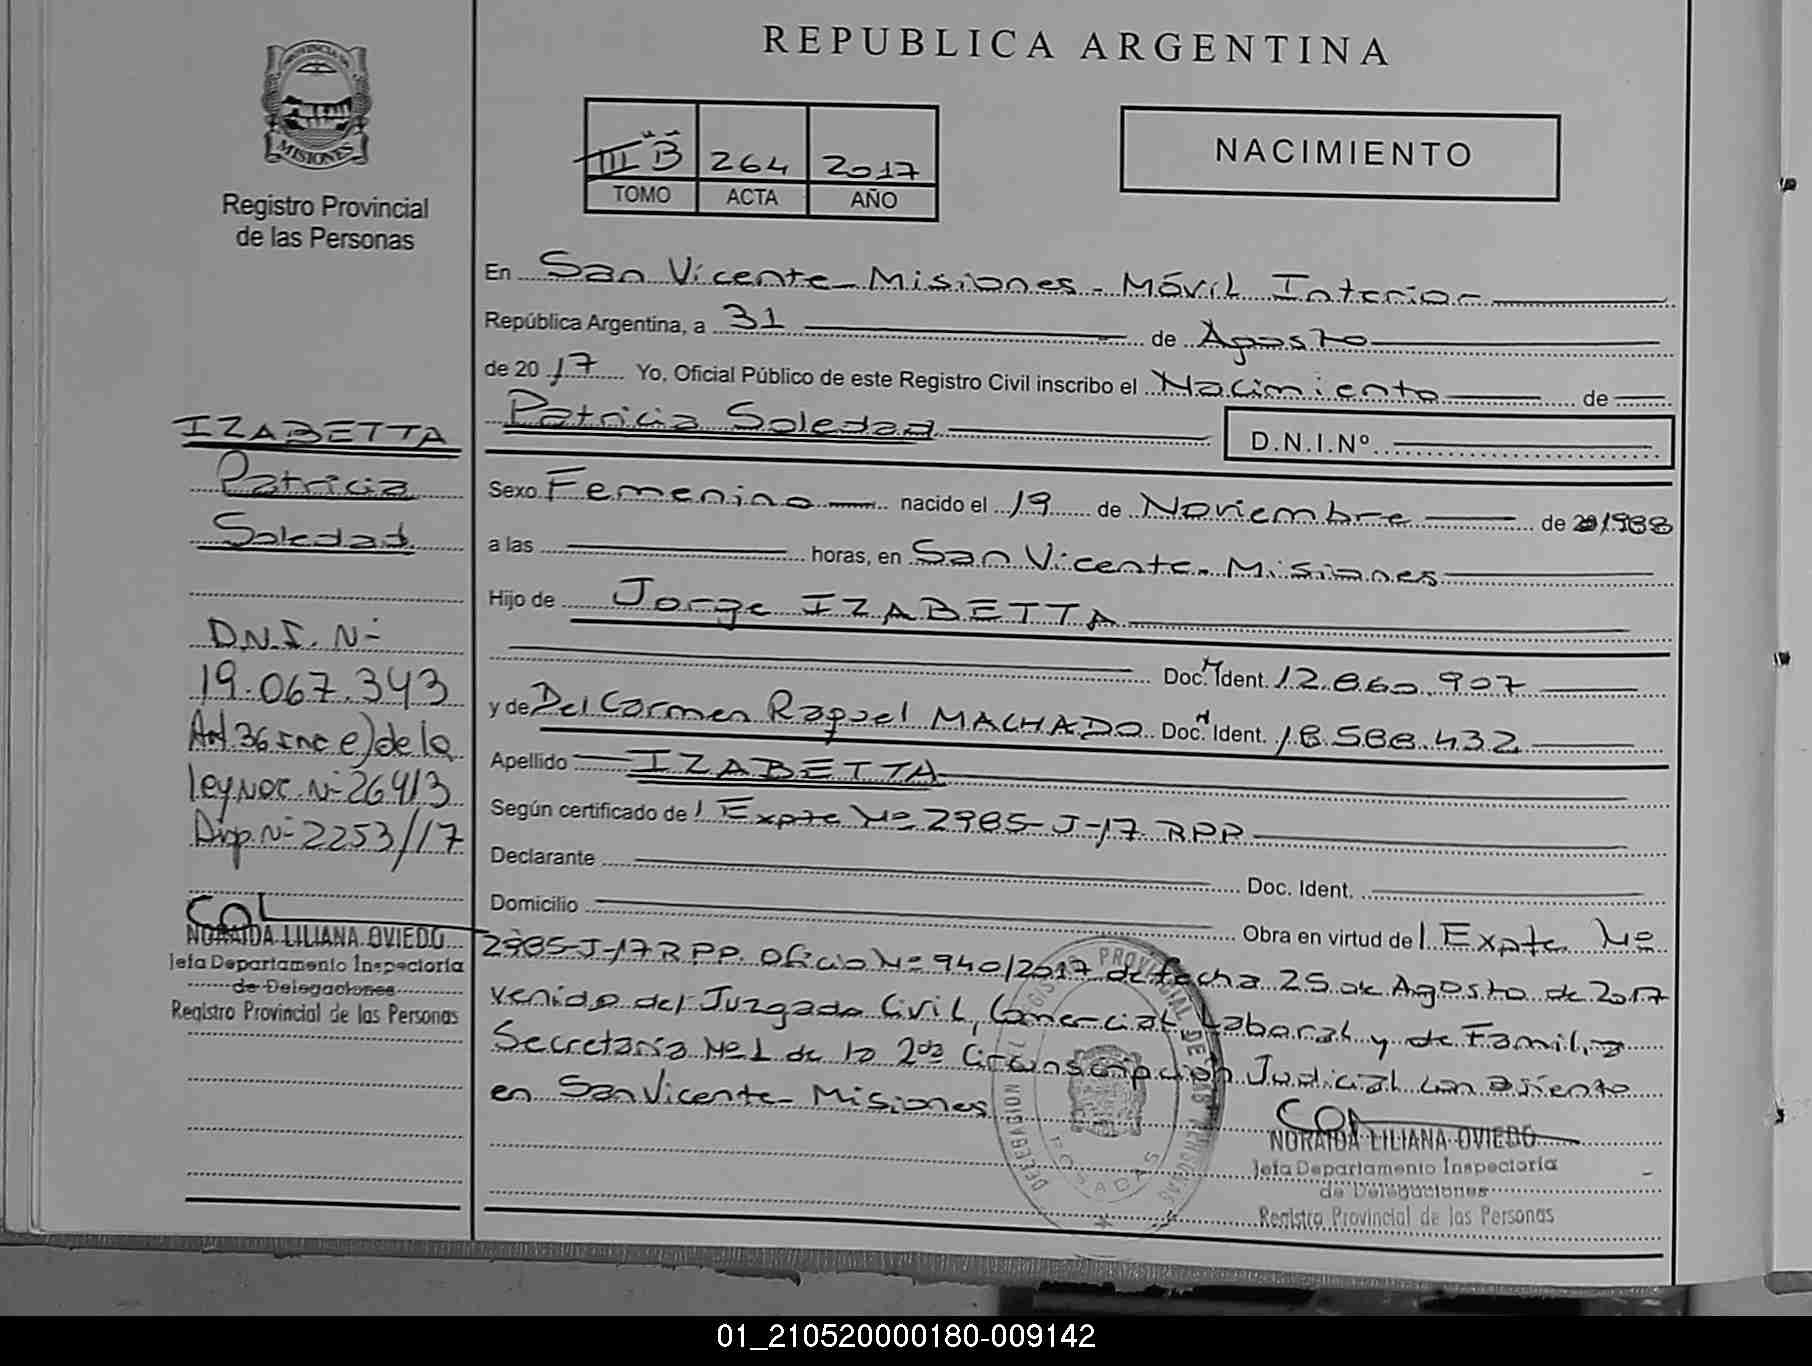 REPUBLICA ARGENTINA
PROVINCIA DE
MISIONES
Registro Provincial
de las Personas
III "B" 264 2017
TOMO ACTA AÑO
NACIMIENTO
En San Vicente - Misiones - Móvil Interior
República Argentina, a 31 de Agosto
de 20 17 Yo, Oficial Público de este Registro Civil inscribo el Nacimiento de
Patricia Soledad
D.N.I.Nº
Sexo Femenino nacido el 19 de Noviembre de 1988
a las horas, en San Vicente - Misiones
Hijo de Jorge IZABETTA
Doc. M Ident. 12.860.907
y de Del Carmen Raquel MACHADO Doc. N Ident. 18.588.432
Apellido IZABETTA
Según certificado de / Expte Nº 2985-J-17 RPP
Declarante Doc. Ident.
Domicilio
Obra en virtud de / Expte Nº
2985-J-17 RPP. Oficio Nº 940/2017 de fecha 25 de Agosto de 2017
venido del Juzgado Civil, Comercial, Laboral y de Familia
Secretaría Nº 1 de la 2da Circunscripción Judicial con asiento
en San Vicente - Misiones
IZABETTA
Patricia
Soledad
D.N.I. Nº
19.067.343
Art 36 inc e) de la
ley Nac. Nº 26413
Disp. Nº 2253/17
NORAIDA LILIANA OVIEDO
Jefa Departamento Inspectoría
de Delegaciones
Registro Provincial de las Personas
REGISTRO PROVINCIAL DE LAS PERSONAS
DELEGACION
POSADAS
NORAIDA LILIANA OVIEDO
Jefa Departamento Inspectoría
de Delegaciones
Registro Provincial de las Personas
01_210520000180-009142